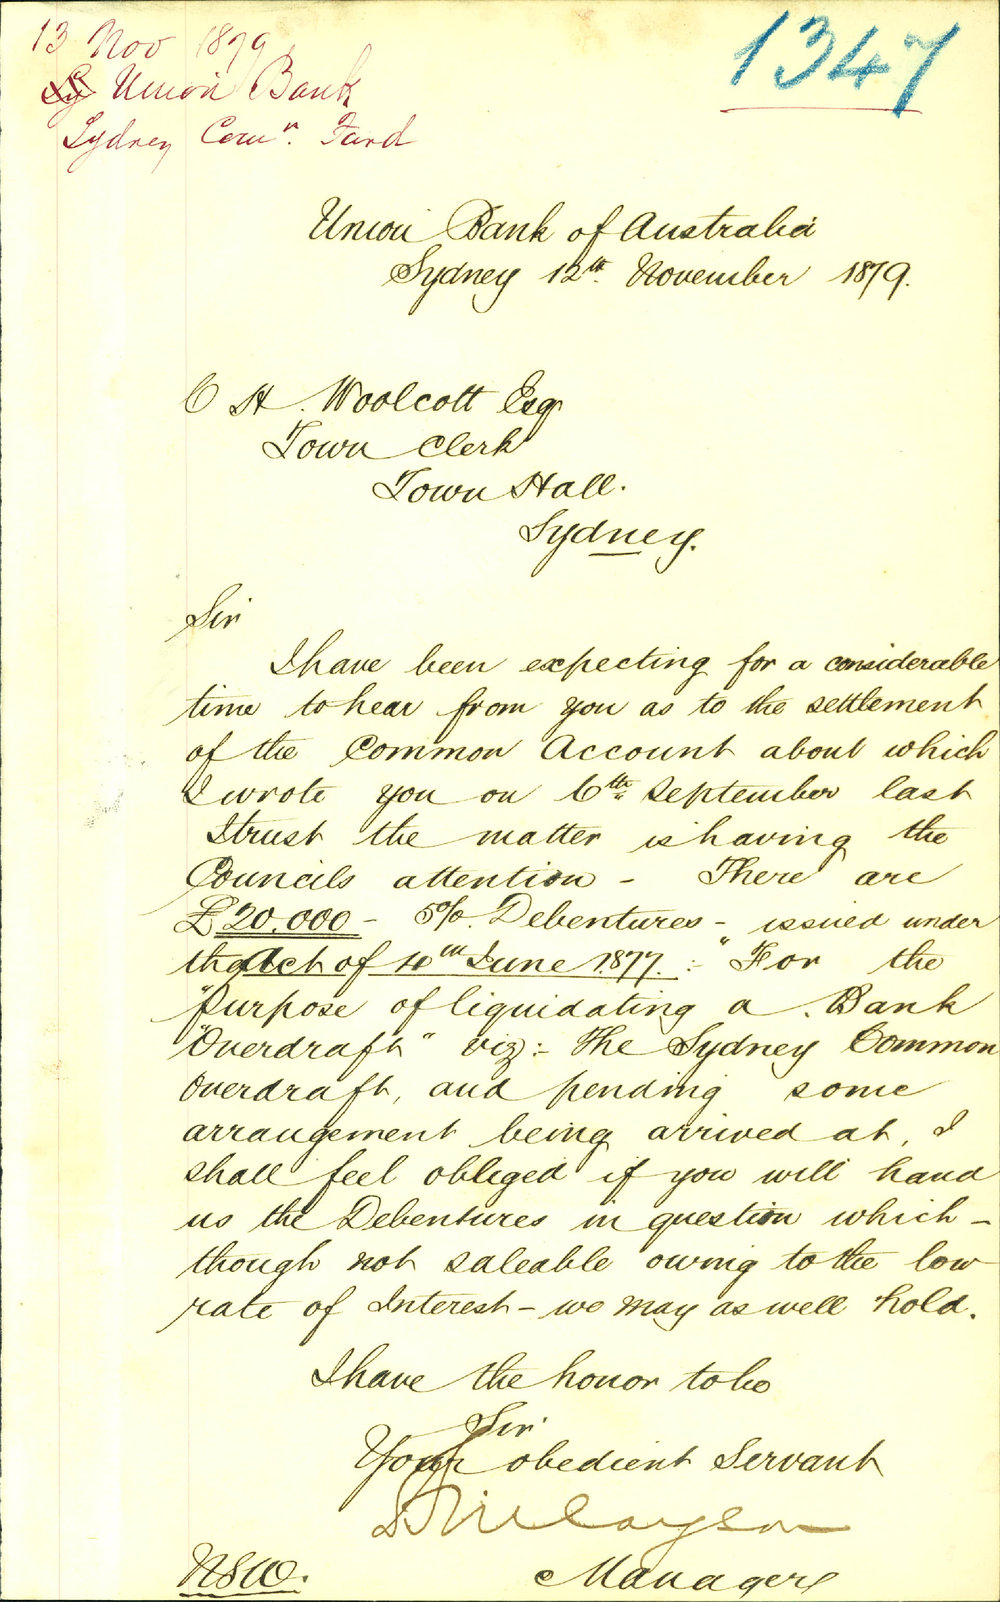 13 Nov 1879
1347
Union Bank
Sydney Comn. Fund
Union Bank of Australia
Sydney 12th November 1879.
C H. Woolcott Esq
Town Clerk
Town Hall.
Sydney.
Sir
I have been expecting for a considerable
time to hear from you as to the settlement
of the Common Account about which
I wrote you on 6th September last
I trust the matter is having the
Councils attention - There are
£20.000 - 5%. Debentures - issued under
the Act of 4th June 1877. :- "For the
"purpose of liquidating a Bank
"Overdraft" viz:- The Sydney Common
Overdraft, and pending some
arrangement being arrived at, I
shall feel obliged if you will hand
us the Debentures in question which -
though not saleable owing to the low
rate of Interest - we may as well hold.
I have the honor to be
Sir
Your obedient Servant
Manager
NSW.